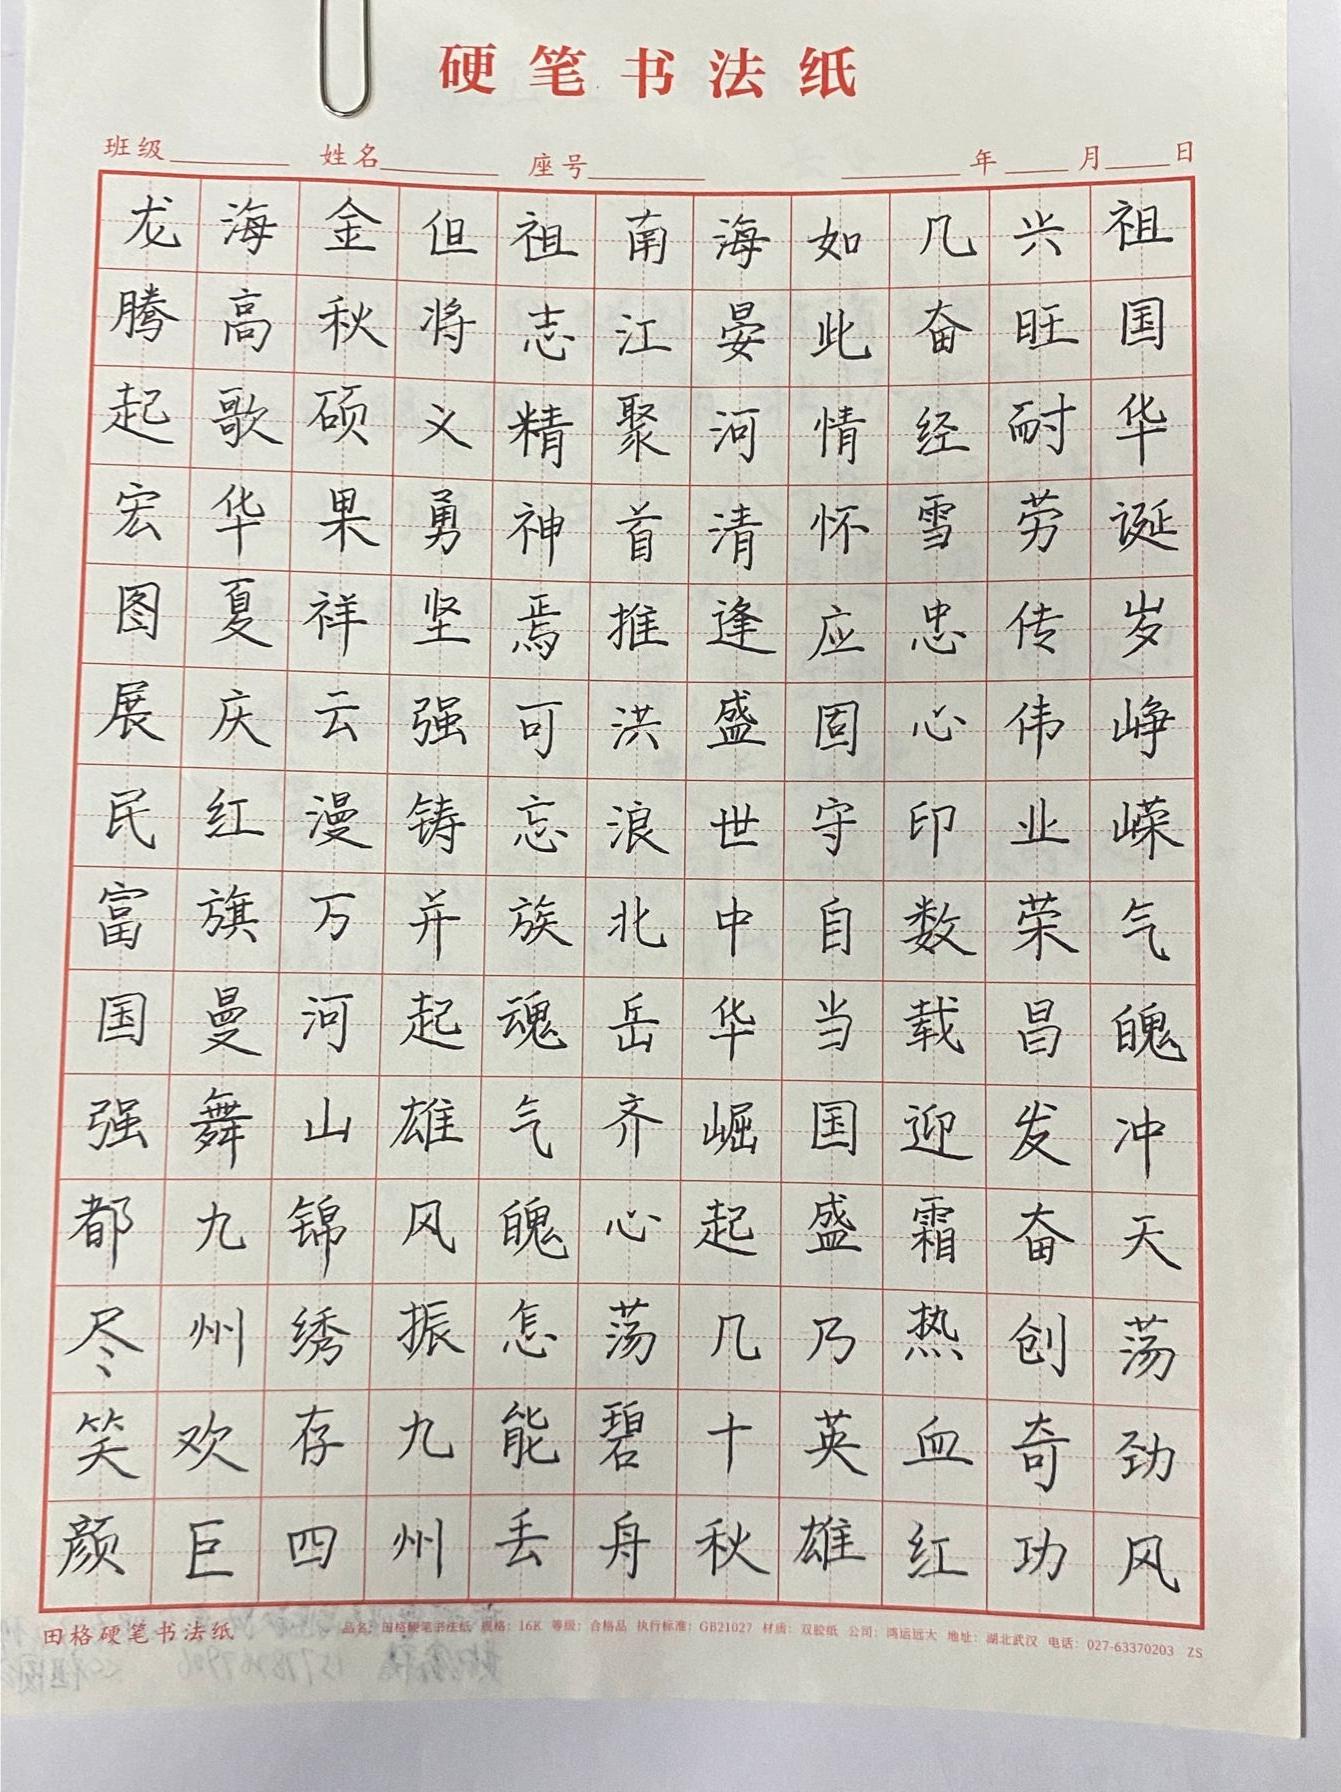 硬笔书法纸
班级 姓名 座号 年 月 日
祖国华诞岁峥嵘气魄冲天荡劲风
兴旺耐劳传伟业荣昌发奋创奇功
几奋经雪忠心印数载迎霜热血红
如此情怀应固守自当国盛乃英雄
海晏河清逢盛世中华崛起几十秋
南江聚首推洪浪北岳齐心荡碧舟
祖志精神焉可忘族魂气魄怎能丢
但将义勇坚强铸并起雄风振九州
金秋硕果祥云漫万河山锦绣存四
海高歌华夏庆红旗曼舞九州欢巨
龙腾起宏图展民富国强都尽笑颜
田格硬笔书法纸 品名：田格硬笔书法纸 规格：16K 等级：合格品 执行标准：GB21027 材质：双胶纸 公司：鸿运远大 地址：湖北武汉 电话：027-63370203 ZS